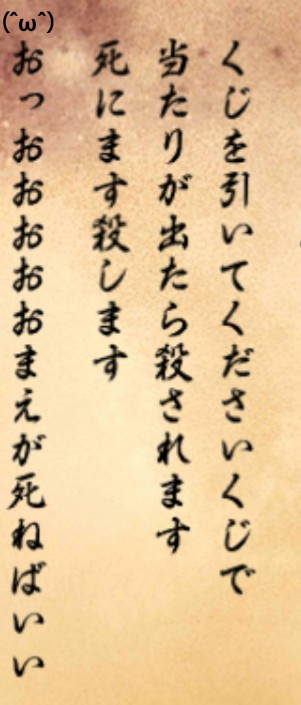 くじを引いてくださいくじで
当たりが出たら殺されます
死にます殺します
(^ω^)
おっおおおおおまえが死ねばいい